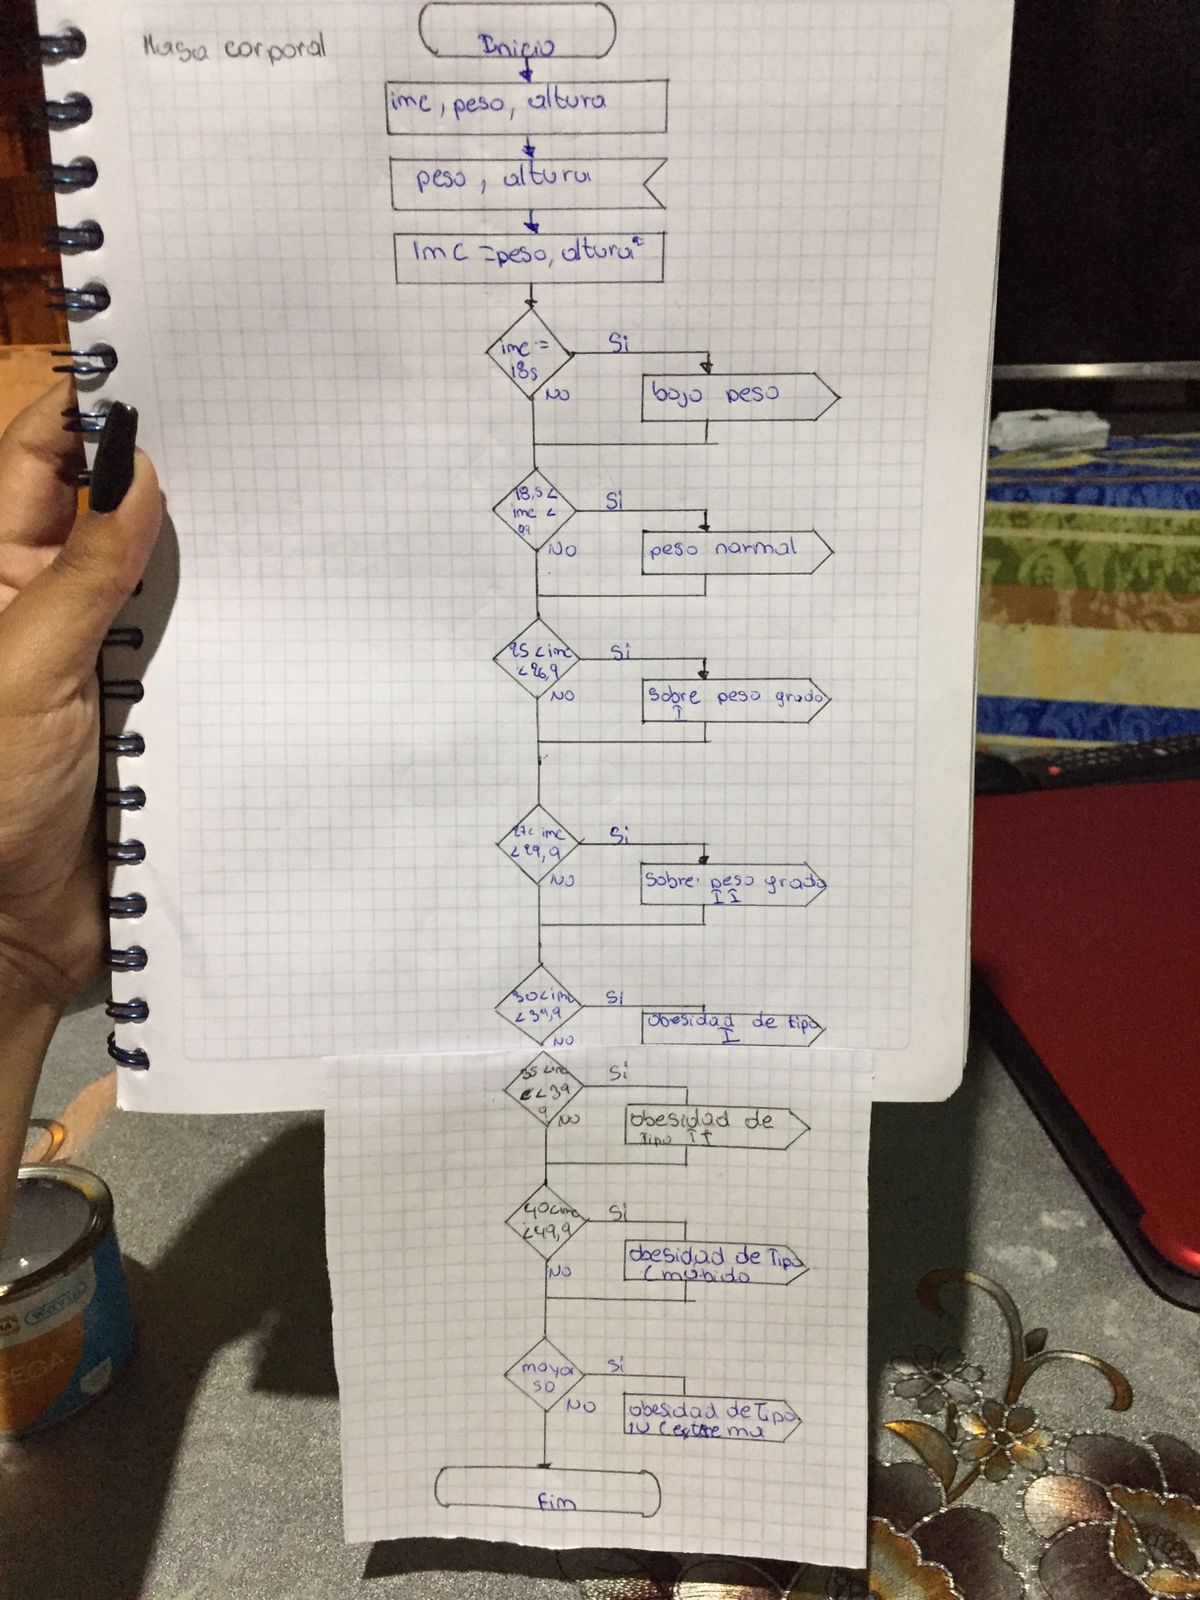 Masa corporal
Inicio
imc, peso, altura
peso, altura
Imc =peso, altura²
imc =
18s
Si
NO
bojo peso
18,5<
imc <
99
Si
NO
peso normal
25 <imc
<26,9
Si
NO
sobre peso grado
I
27< imc
<29,9
Si
NO
Sobre peso grado
II
30<imc
<39,9
Si
NO
obesidad de tipo
I
Si
NO
obesidad de
Tipo II
40<imc
<49,9
Si
NO
obesidad de Tipo
mayor
50
Si
NO
obesidad de Tipo
Fin